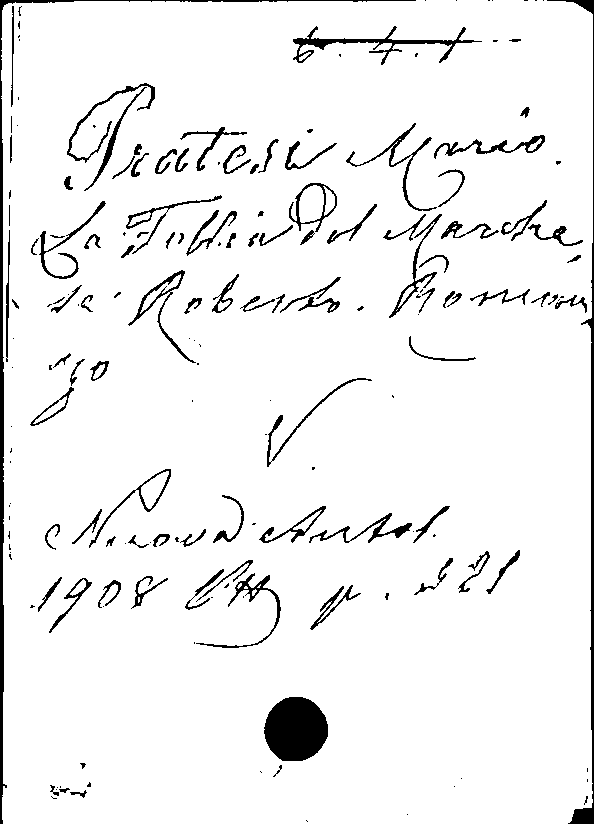 6. 4. 1
Pratesi Mario.
La Follia del Marche,
se Roberto. Roman,
zo
V.
Nuova Antol.
1908 p. 521